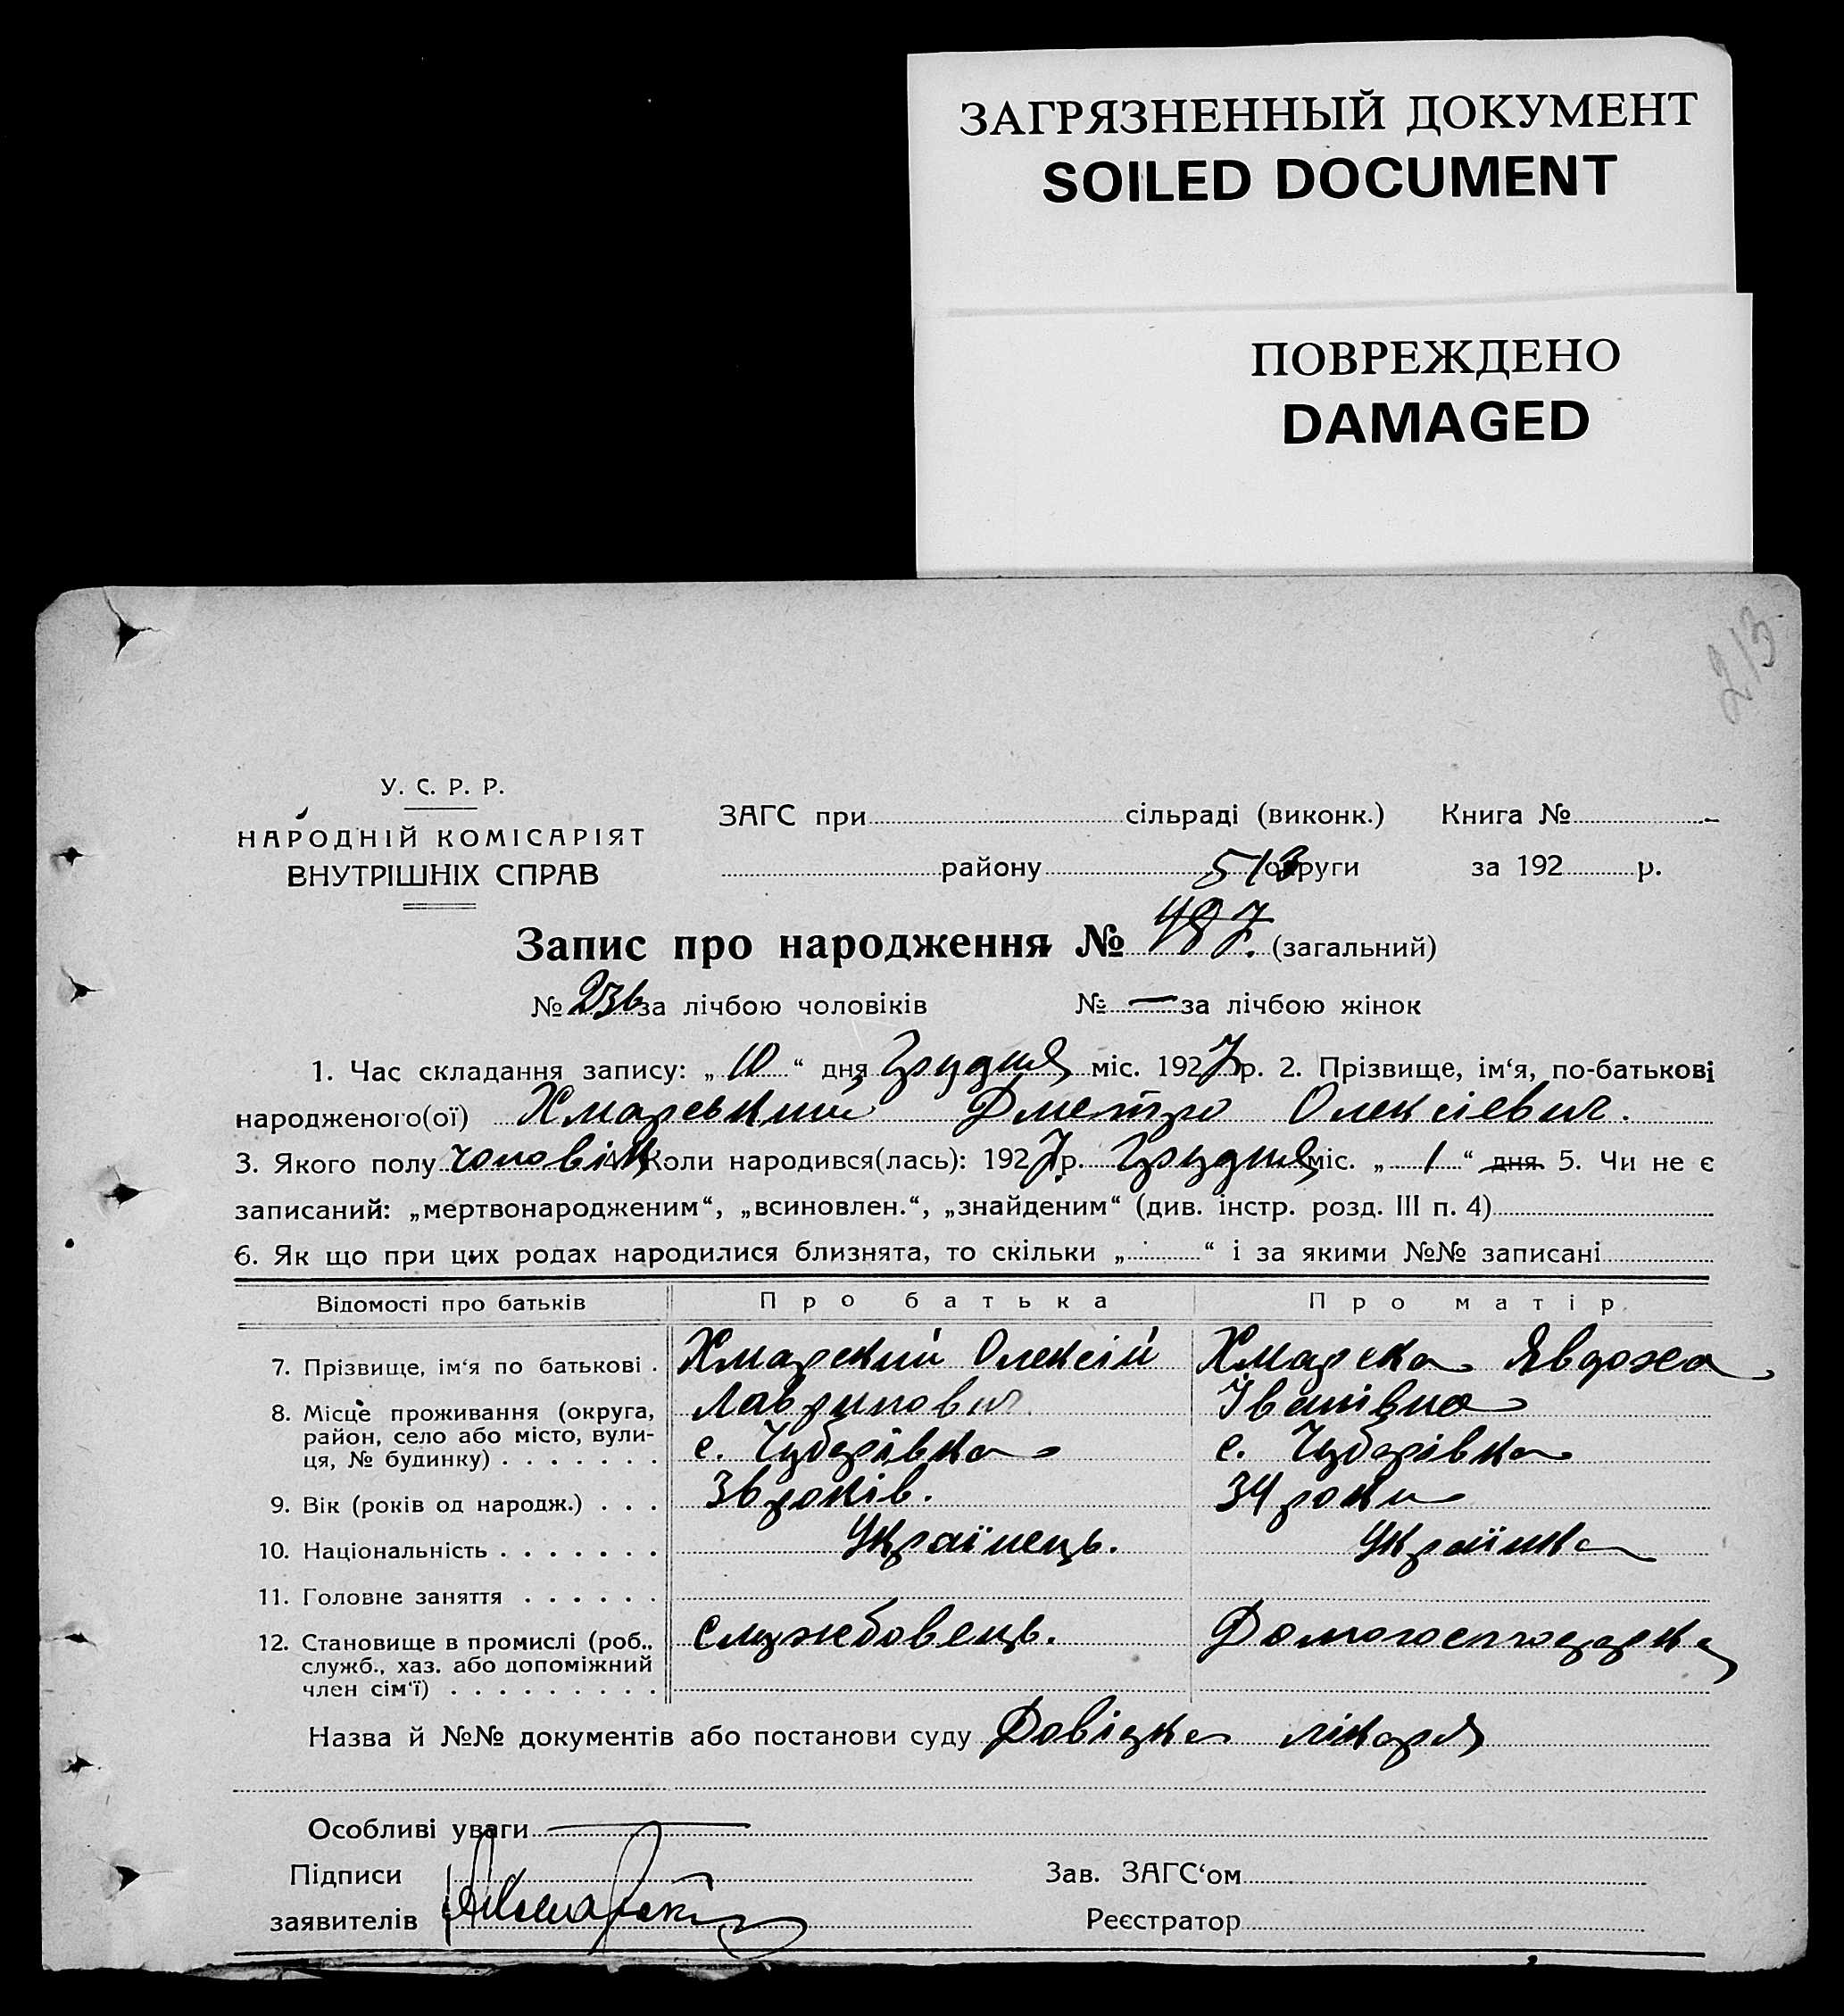 ЗАГРЯЗНЕННЫЙ ДОКУМЕНТ
SOILED DOCUMENT
ПОВРЕЖДЕНО
DAMAGED
213
У. С. Р. Р.
НАРОДНІЙ КОМІСАРІЯТ
ВНУТРІШНІХ СПРАВ
ЗАГС при сільраді (виконк.) Книга №
району округи за 192 р.
513
Запис про народження № 487. (загальний)
№ 236 за лічбою чоловіків № — за лічбою жінок
1. Час складання запису: „10“ дня Грудня міс. 1927 р. 2. Прізвище, ім‘я, по-батькові
народженого(ої) Хмарський Дметро Олексієвич.
3. Якого полу чоловік 4. Коли народився(лась): 1927 р. Грудня міс. „1“ дня 5. Чи не є
записаний: „мертвонародженим“, „всиновлен.“, „знайденим“ (див. інстр. розд. III п. 4)
6. Як що при цих родах народилися близнята, то скільки „ “ і за якими №№ записані
Відомості про батьків Про батька Про матір
7. Прізвище, ім‘я по батькові . Хмарский Олексій Хмарска Явдоха
Лавринович Іванівна
8. Місце проживання (округа,
район, село або місто, вули-
ця, № будинку) . . . . . . . с. Чубарівка с. Чубарівка
9. Вік (років од народж.) . . . 36 років. 34 роки
10. Національність . . . . . . . Українець. Українка
11. Головне заняття . . . . . .
12. Становище в промислі (роб., Службовець. Домогосподарка
служб., хаз. або допоміжний
член сім‘ї) . . . . . . . . .
Назва й №№ документів або постанови суду Довідка лікаря
Особливі уваги —
Підписи Зав. ЗАГС‘ом
заявителів Реєстратор